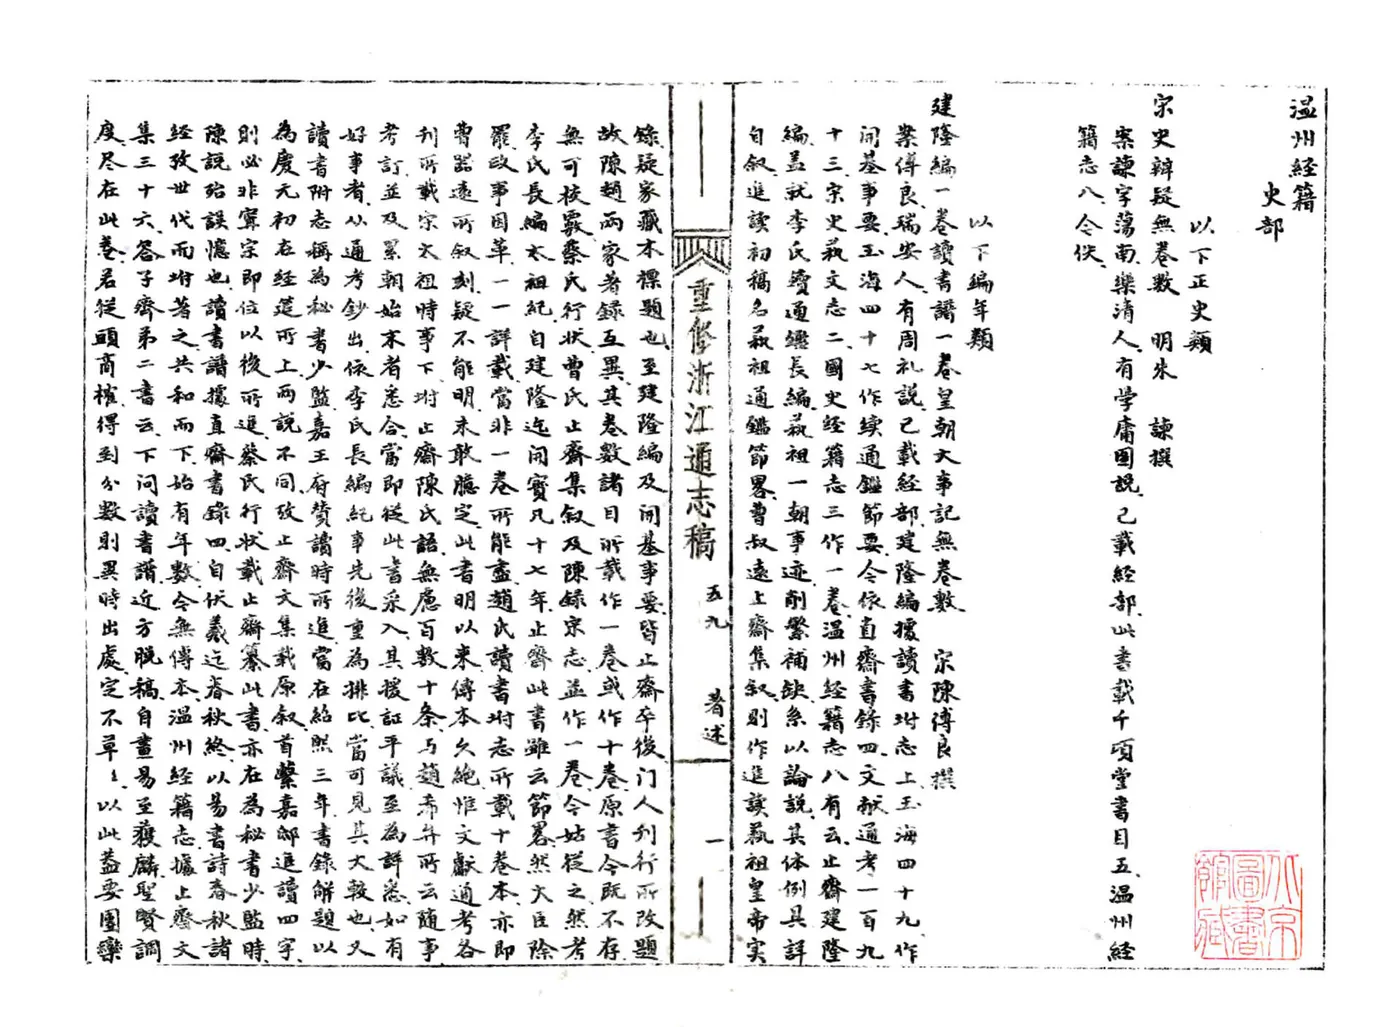 温州經籍
史部
以下正史類
宋史辯疑無卷數　明朱　諫撰
案諫字蕩南樂清人有學庸圖說已載經部此書載千頃堂書目五温州經
籍志八今佚
以下編年類
建隆編一卷讀書譜一卷皇朝大事記無卷數　宋陳傅良撰
案傅良瑞安人有周礼說已載經部建隆編據讀書附志上玉海四十九作
開基事要玉海四十七作續通鑑節要今依直齋書錄四文献通考一百九
十三宋史萟文志二國史經籍志三作一卷温州經籍志八有云止齋建隆
編盖就李氏續通鑑長編萟祖一朝事迹削繁補缺系以論說其体例具詳
自叙進讀初稿名萟祖通鑑節畧曹叔遠上齋集叙則作進讀萟祖皇帝实
重修浙江通志稿
五九
著述
一
錄疑家藏本標題也至建隆編及開基事要皆止齋卒後门人刋行所改題
故陳趙兩家著録互異其卷數諸目所載作一卷或作十卷原書今既不存
無可校覈蔡氏行状曹氏止齋集叙及陳錄宋志並作一卷今姑從之然考
李氏長編太祖紀自建隆迄開寶凡十七年止齋此書雖云節畧然大臣除
罷政事因革一一詳載當非一卷所能盡趙氏讀書附志所載十卷本亦即
曹器遠所叙刻疑不能明未敢臆定此書明以來傳本久絶惟文獻通考各
刋所載宋太祖時事下坿止齋陳氏語無慮百數十条与趙希弁所云随事
考訂並及累朝始末者悉合當即從此書采入其援証平議至為詳悉如有
好事者从通考鈔出依李氏長編紀事先後重為排比當可見其大較也又
讀書附志稱為秘書少監嘉王府賛讀時所進當在紹熙三年書錄解題以
為慶元初在經筵所上兩說不同攷止齋文集載原叙首繫嘉邸進讀四字
則必非寧宗即位以後所進蔡氏行状載止齋纂此書亦在為秘書少監時
陳說殆誤憶也讀書譜據直齋書錄四自伏羲迄春秋終以易書詩春秋諸
經攷世代而坿著之共和而下始有年數今無傳本温州經籍志據上齋文
集三十六答子齊弟二書云下问讀書譜近方脱稿自畫易至獲麟聖賢調
度尽在此卷若從頭商榷得到分數則異時出處定不草〻以此益要團欒